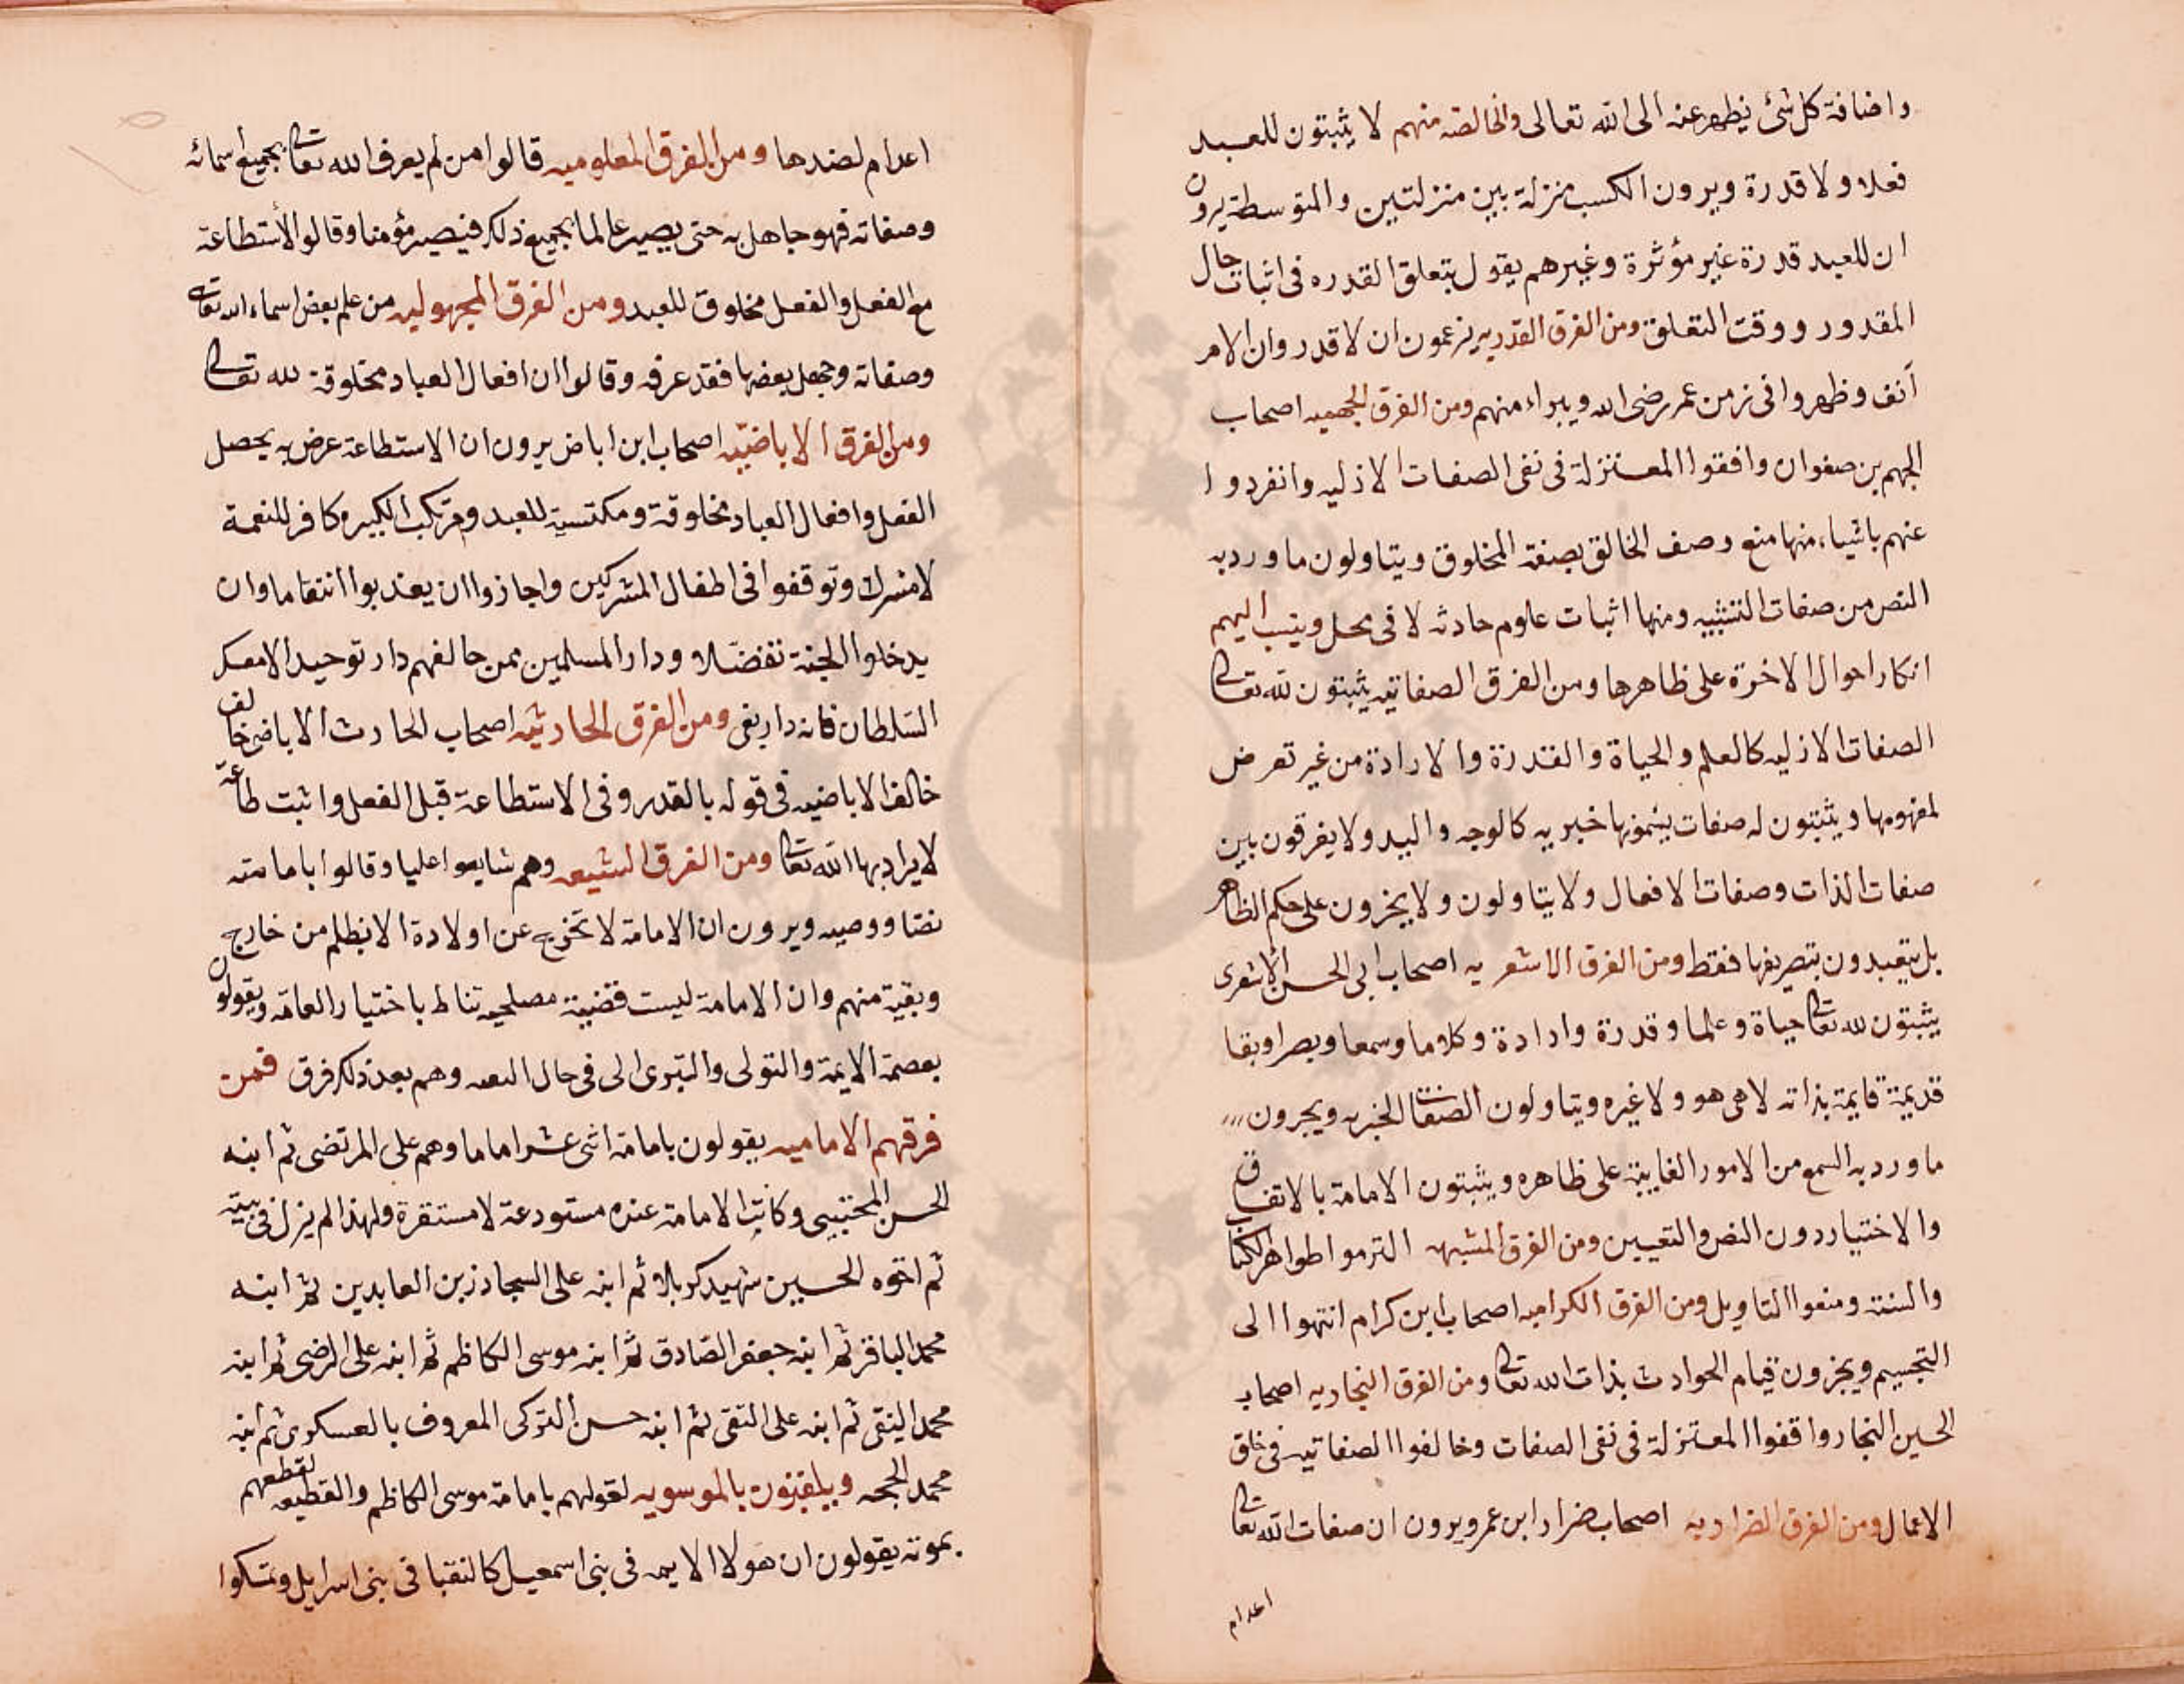 واضافة كل شئ يظهر عنه الى الله تعالى والخالصه منهم لا يثبتون للعبد
فعلا ولا قدرة ويرون الكسب منزلة بين منزلتين والمتوسطة يرون
ان للعبد قدرة غير مؤثرة وغيرهم يقول بتعلق القدره فى اثبات حال
المقدور ووقت التعلق ومن الفرق القدريه يزعمون ان لا قدر وان الامر
آنف وظهروا فى زمن عمر رضى الله ويبراء منهم ومن الفرق الجهميه اصحاب
الجهم بن صفوان وافقوا المعتزلة فى نفى الصفات الازليه وانفردوا
عنهم باشياء منها منع وصف الخالق بصفة المخلوق ويتاولون ما ورد به
النص من صفات التشبيه ومنها اثبات علوم حادثه لا فى محل وينسب اليهم
انكار احوال الاخرة على ظاهرها ومن الفرق الصفاتيه يثبتون لله تعالى
الصفات الازليه كالعلم والحياة والقدرة والارادة من غير تعرض
لمفهومها ويثبتون له صفات يسمونها خبريه كالوجه واليد ولا يفرقون بين
صفات الذات وصفات الافعال ولا يتاولون ولا يجرون على حكم الظاهر
بل يتعبدون بتصريفها فقط ومن الفرق الاشعريه اصحاب ابى الحسن الاشعرى
يثبتون لله تعالى حياة وعلما وقدرة وارادة وكلاما وسمعا وبصرا وبقا
قديمة قايمة بذاته لا هى هو ولا غيره ويتاولون الصفات الخبريه ويجرون
ما ورد به السمع من الامور الغايبة على ظاهره ويثبتون الامامة بالاتفاق
والاختيار دون النص والتعيين ومن الفرق المشبهه التزموا ظواهر الكتاب
والسنة ومنعوا التاويل ومن الفرق الكراميه اصحاب ابن كرام انتهوا الى
التجسيم ويجزون قيام الحوادث بذات الله تعالى ومن الفرق النجاريه اصحاب
الحسين النجار وافقوا المعتزلة فى نفى الصفات وخالفوا الصفاتيه فى خلق
الاعمال ومن الفرق الضراريه اصحاب ضرار ابن عمر ويرون ان صفات الله تعالى
اعدام
اعدام لضدها ومن الفرق المعلوميه قالوا من لم يعرف الله تعالى بجميع اسمائه
وصفاته فهو جاهل به حتى يصير عالما بجميع ذلك فيصير مؤمنا وقالو الأستطاعة
مع الفعل والفعل مخلوق للعبد ومن الفرق المجهوليه من علم بعض اسماء الله تعالى
وصفاته وجهل بعضها فقد عرفه وقالوا ان افعال العباد مخلوقة لله تعالى
ومن الفرق الاباضيّه اصحاب ابن اباض يرون ان الاستطاعة عرض به يحصل
الفعل وافعال العباد مخلوقة ومكتسبة للعبد ومرتكب الكبيره كافر للنعمة
لا مشرك وتوقفوا فى اطفال المشركين واجازوا ان يعذبوا انتقاما وان
يدخلوا الجنة تفضّلا ودار المسلمين ممن خالفهم دار توحيد الا معسكر
السّلطان فانه دار بغى ومن الفرق الحادثيه اصحاب الحارث الاباضى خالف
خالف الاباضيه فى قوله بالقدر وفى الاستطاعة قبل الفعل واثبت طاعة
لا يراد بها الله تعالى ومن الفرق الشيعه وهم شايعوا عليا وقالوا بامامته
نصّا ووصيه ويرون ان الامامة لا تخرج عن اولادة الا بظلم من خارج
وبقية منهم وان الامامة ليست قضية مصلحيه تناط باختيار العامّه ويقولون
بعصمة الايمة والتولى والتبرى الى فى حال وهم بعد ذلك فرق فمن
فرقهم الاماميه يقولون بامامة اثنى عشر اماما وهم على المرتضى ثم ابنه
الحسن المجتبى وكانت الامامة عنده مستودعة لا مستقرة ولهذا لم يزل فى بيته
ثم اخوه الحسين شهيد كربلا ثم ابنه على السجاد زين العابدين ثم ابنه
محمد الباقر ثم ابنه جعفر الصّادق ثم ابنه موسى الكاظم ثم ابنه على الرضى ثم ابنه
محمد التقى ثم ابنه على النقى ثم ابنه حسن التركى المعروف بالعسكرى ثم ابنه
محمد الحجه ويلقبون بالموسويه لقولهم بامامة موسى الكاظم والقطيعه لقطعهم
بموته يقولون ان هولا الايمه فى بنى اسمعيل كالنقبا فى بنى اسرايل وتمسكوا